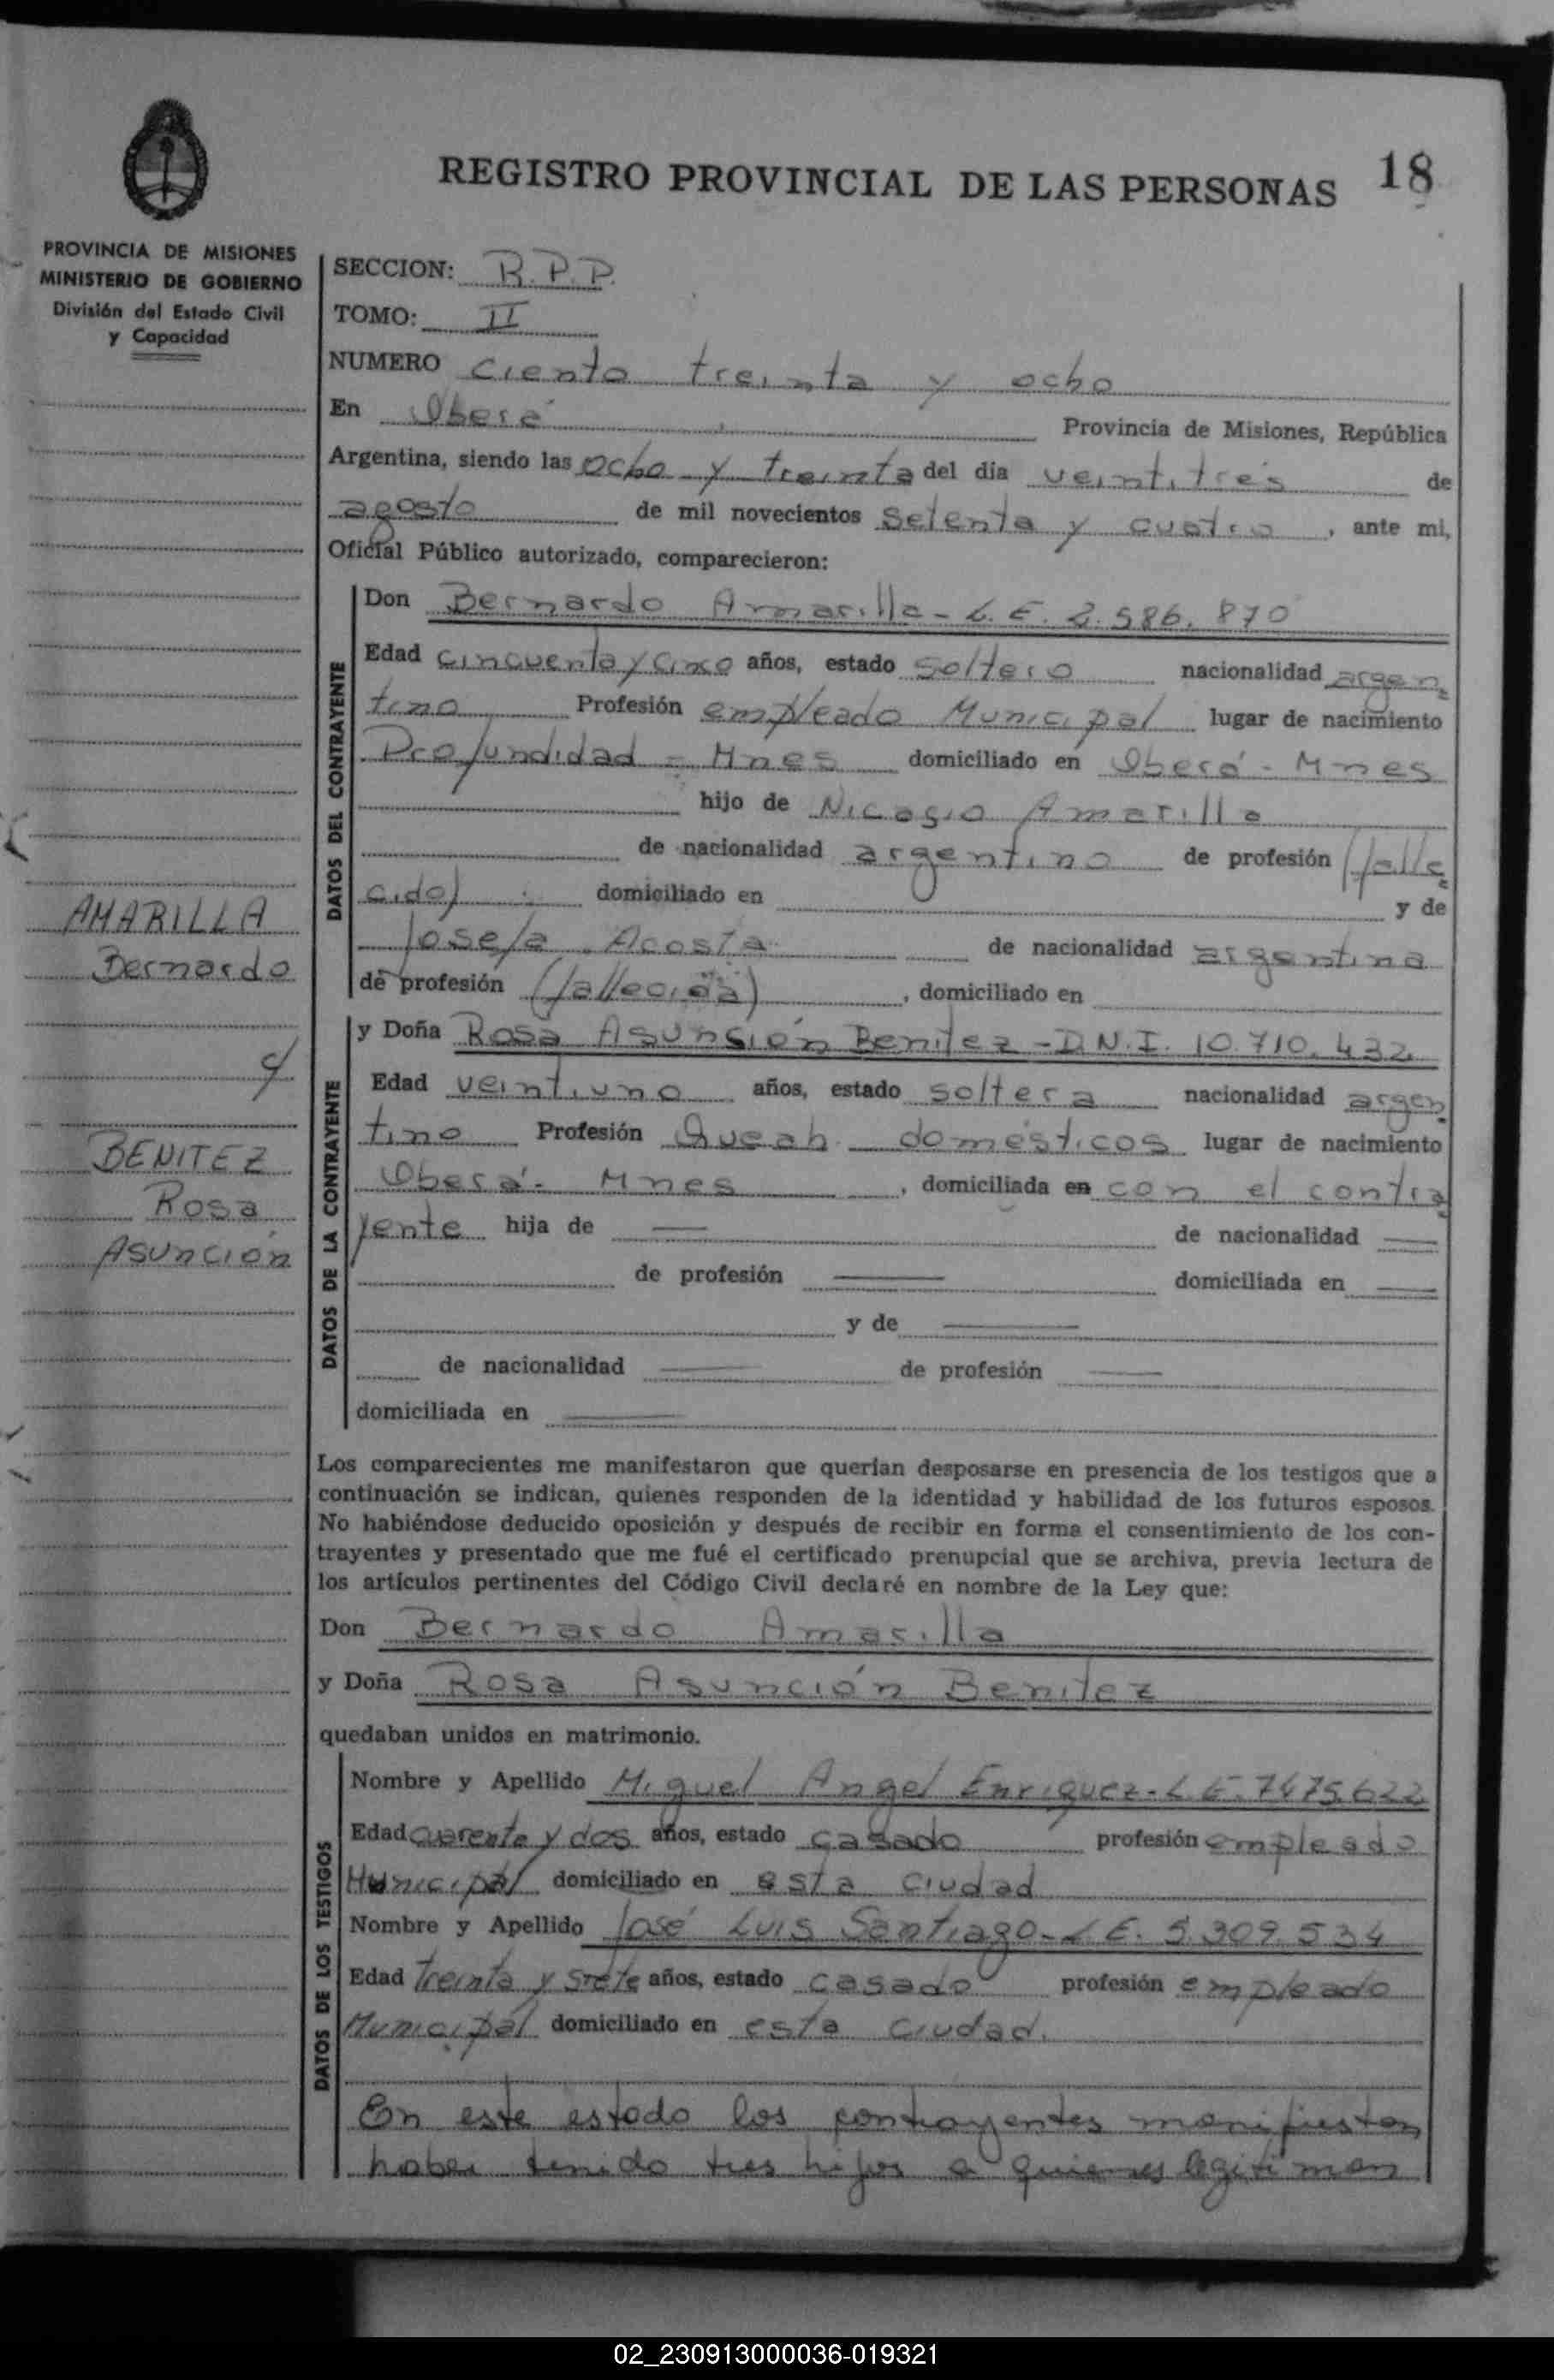 REGISTRO PROVINCIAL DE LAS PERSONAS 18
PROVINCIA DE MISIONES
MINISTERIO DE GOBIERNO
División del Estado Civil
y Capacidad
AMARILLA
Bernardo
y
BENITEZ
Rosa
Asunción
SECCION: R.P.P.
TOMO: II
NUMERO ciento treinta y ocho
En Oberá Provincia de Misiones, República
Argentina, siendo las ocho y treinta del día veintitrés de
agosto de mil novecientos setenta y cuatro, ante mi,
Oficial Público autorizado, comparecieron:
DATOS DEL CONTRAYENTE
Don Bernardo Amarilla - L.E. 2.586.870
Edad cincuenta y cinco años, estado soltero nacionalidad argen
tino Profesión empleado Municipal lugar de nacimiento
Profundidad - Mnes domiciliado en Oberá - Mnes
hijo de Nicasio Amarilla
de nacionalidad argentino de profesión (falle
cido) domiciliado en y de
Josefa Acosta de nacionalidad argentina
de profesión (fallecida), domiciliado en
DATOS DE LA CONTRAYENTE
y Doña Rosa Asunción Benitez - D.N.I. 10.710.432
Edad veintiuno años, estado soltera nacionalidad argen
tino Profesión Queah. domésticos lugar de nacimiento
Oberá - Mnes, domiciliada en con el contra
yente hija de — de nacionalidad —
de profesión — domiciliada en —
y de —
de nacionalidad — de profesión —
domiciliada en —
Los comparecientes me manifestaron que querían desposarse en presencia de los testigos que a
continuación se indican, quienes responden de la identidad y habilidad de los futuros esposos.
No habiéndose deducido oposición y después de recibir en forma el consentimiento de los con-
trayentes y presentado que me fué el certificado prenupcial que se archiva, previa lectura de
los artículos pertinentes del Código Civil declaré en nombre de la Ley que:
Don Bernardo Amarilla
y Doña Rosa Asunción Benitez
quedaban unidos en matrimonio.
DATOS DE LOS TESTIGOS
Nombre y Apellido Miguel Angel Enriquez - L.E. 7475622
Edad cuarenta y dos años, estado casado profesión empleado
Municipal domiciliado en esta ciudad
Nombre y Apellido José Luis Santiago - L.E. 5.309.534
Edad treinta y siete años, estado casado profesión empleado
Municipal domiciliado en esta ciudad.
En este estado los contrayentes manifiestan
haber tenido tres hijos a quienes legitiman
02_230913000036-019321